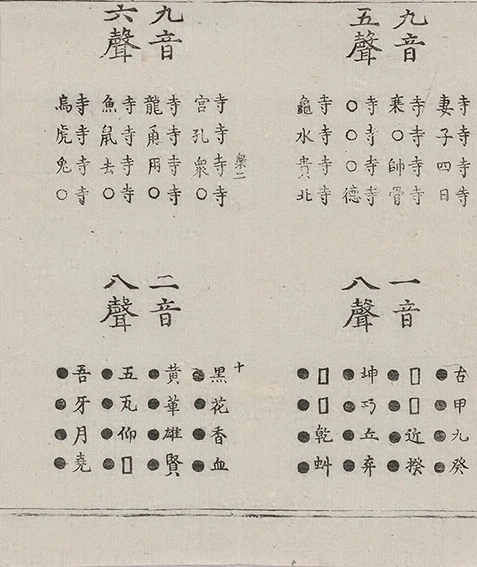 九音
五聲
寺寺寺寺
妻子四日
寺寺寺寺
衰○帥骨
寺寺寺寺
○○○德
寺寺寺寺
龜水貴北
九音
六聲
寺寺寺寺
衆二
宮孔衆○
寺寺寺寺
龍甬用○
寺寺寺寺
魚鼠去○
寺寺寺寺
烏虎兔○
一音
八聲
古甲九癸
●●●●
□□近揆
●●●●
坤巧丘弃
●●●●
□□乾虯
●●●●
二音
八聲
十
黑花香血
●●●●
黃華雄賢
●●●●
五瓦仰□
●●●●
吾牙月堯
●●●●